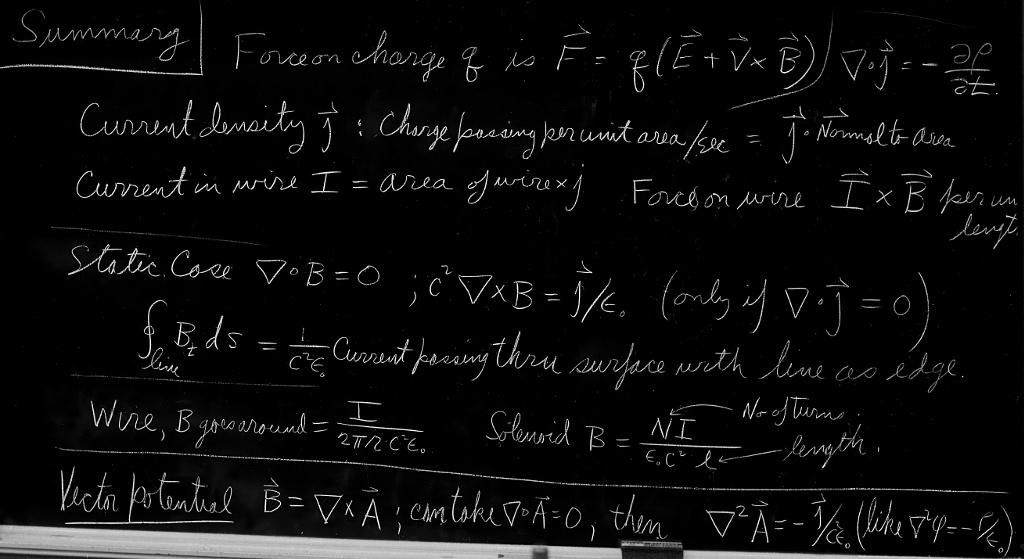 Summary
Force on charge q is F⃗ = q(E⃗ + V⃗ × B⃗) ∇·j⃗ = - ∂ρ/∂t.
Current density j⃗ : Charge passing per unit area/sec = j⃗ · Normal to area
Current in wire I = area of wire × j Force on wire I⃗ × B⃗ per un
lengt
Static Case ∇·B = 0 ; c²∇×B = j⃗/ε₀ (only if ∇·j⃗ = 0)
∮line Bt ds = 1/c²ε₀ Current passing thru surface with line as edge.
Wire, B goes around = I/2πr·c²ε₀ Solenoid B = NI/ε₀c² l No of turns. length.
Vector potential B⃗ = ∇×A⃗ ; can take ∇·A⃗ = 0, then ∇²A⃗ = - j⃗/c²ε₀ (like ∇²φ = - ρ/ε₀)